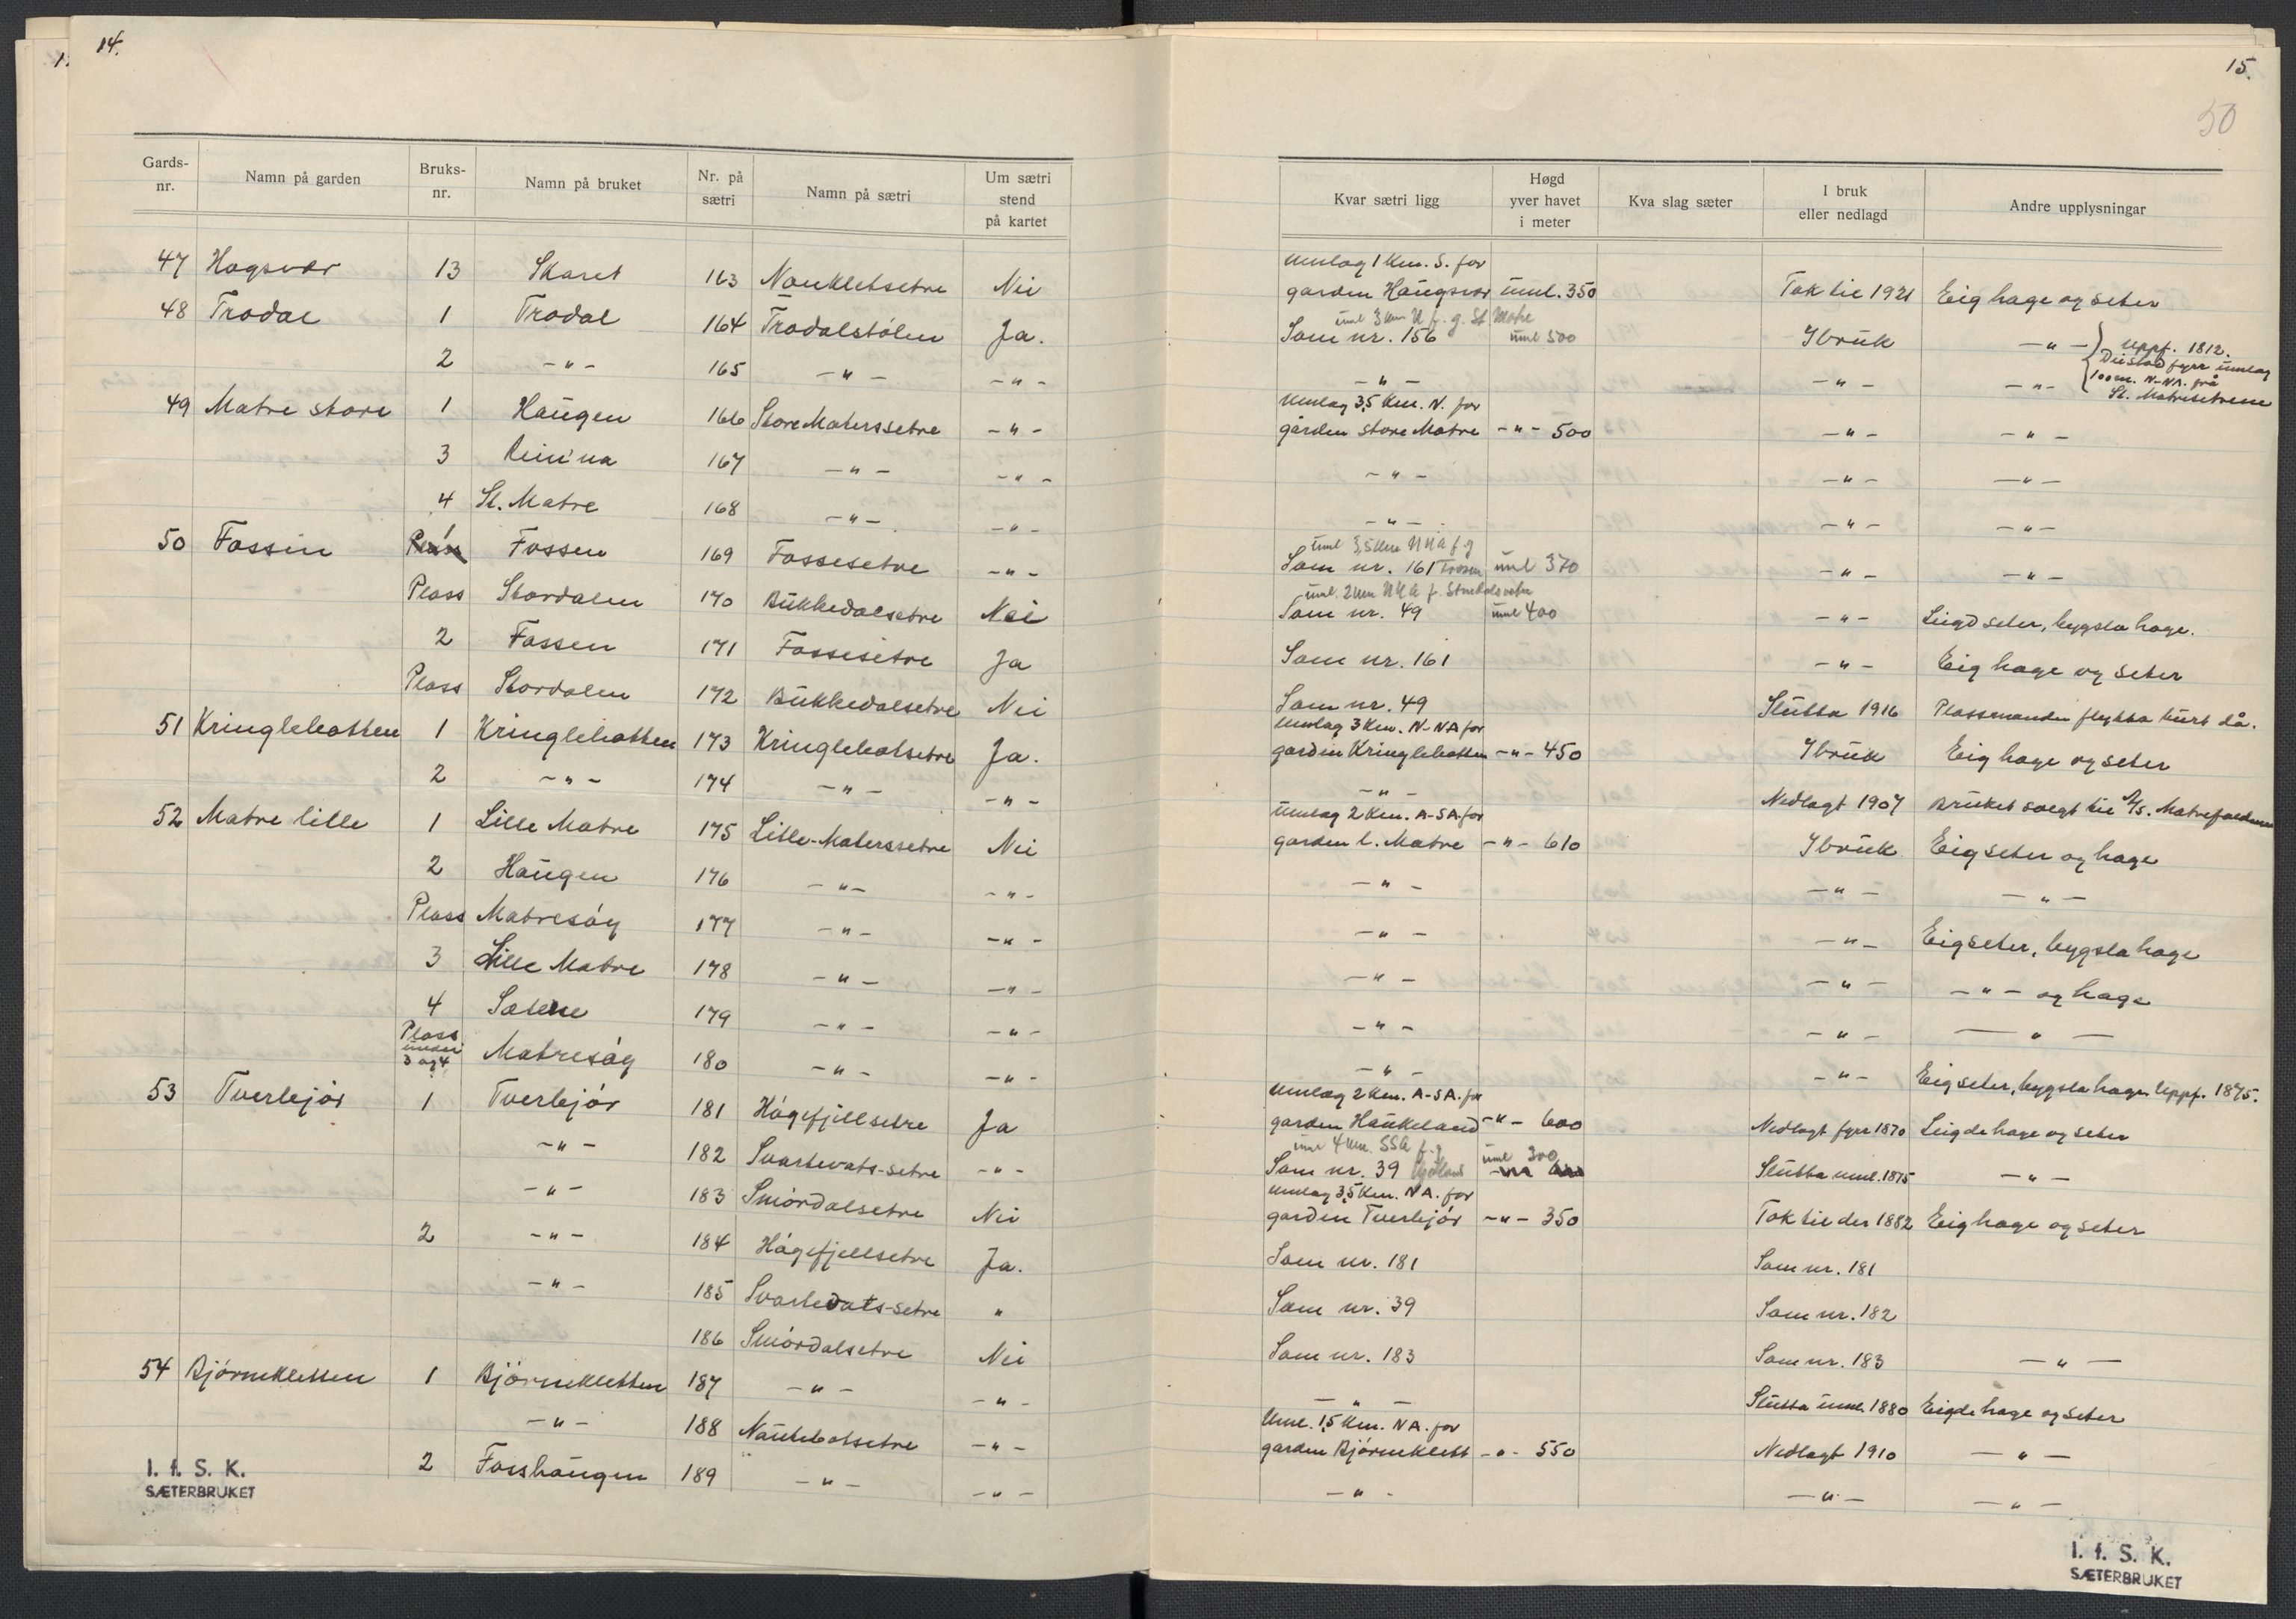 14.
Gards-nr. Namn på garden Bruks-nr. Namn på bruket Nr. på sætri Namn på sætri Um sætri stend på kartet
47 Hagsvær 13 Skaret 163 Naukletsetre Nei
48 Trodal 1 Trodal 164 Trodalstölen Ja.
2 -"- 165 -"- -"-
49 Matre store 1 Haugen 166 Store Materssetre -"-
3 167 -"- -"-
4 St. Matre 168 -"- -"-
50 Fossen 1 Fossen 169 Fossesetre -"-
Plass Stordalen 170 Bukkedalsetre Nei
2 Fossen 171 Fossesetre Ja
Plass Stordalen 172 Bukkedalsetre Nei
51 Kringlebotten 1 Kringlebotten 173 Kringlebotsetre Ja.
2 -"- 174 -"- -"-
52 Matre lille 1 Lille Matre 175 Litle-Materssetre Nei
2 Haugen 176 -"- -"-
Plass Matresåg 177 -"- -"-
3 Lille Matre 178 -"- -"-
4 179 -"- -"-
Plass under 3 og 4 Matresåg 180 -"- -"-
53 Tverlejör 1 Tverlejör 181 Högefjellsetre Ja
-"- 182 Svartevats-setre -"-
-"- 183 Smördalsetre Nei
2 -"- 184 Högefjellsetre Ja.
-"- 185 Svartevats-setre "
186 Smördalsetre Nei
54 Björnekletten 1 Björnekletten 187 -"- -"-
-"- 188 Naustebotsetre -"-
2 Fosshaugen 189 -"- -"-
I. f. S. K.
SÆTERBRUKET
15.
50
Kvar sætri ligg Høgd yver havet i meter Kva slag sæter I bruk eller nedlagd Andre upplysningar
Umlag 1 km. S. for
garden Haugsvær uml. 350 Tok til 1921 Eig hage og seter
uml 3 km N f. g. St. Matre
Som nr. 156 uml 500 I bruk -"- } uppf. 1812.
-"- -"- -"- { fyrr umlag
100 m. N-NA. frå
St. Matresetrene
Umlag 3,5 km. N. for
garden store Matre -"- 500 -"- -"-
-"- -"- -"-
-"- -"- -"-
uml 3,5 km NNA f. g
Som nr. 161 Fossen uml 370 -"- -"-
uml. 2 km NNA f. Stordalsvatn
Som nr. 49 uml 400 -"- Leigd seter, bygsla hage.
Som nr. 161 -"- Eig hage og seter
Som nr. 49 Slutta 1916 Plassmanden flytta burt då.
Umlag 3 km. N-NA for
garden Kringlebotten -"- 450 I bruk Eig hage og seter
-"- Nedlagt 1907 Bruket solgt til A/S. Matrefaldene
Umlag 2 km. A-SA. for
garden l. Matre -"- 610 I bruk Eig seter og hage
-"- -"- -"-
-"- -"- Eig seter, bygsla hage
-"- -"- -"- og hage
-"- -"- -"-
-"- -"- Eig seter, bygsla hage. Uppf. 1875.
Umlag 2 km. A-SA. for
garden Haukeland -"- 600 Nedlagt fyrr 1870 Leigde hage og seter
uml 4 km. SSA f. g uml 300
Som nr. 39 Slutta uml. 1875 -"-
Umlag 3,5 km. NA. for
garden Tverlejör -"- 350 Tok til der 1882 Eig hage og seter
Som nr. 181 Som nr. 181
Som nr. 39 Som nr. 182
Som nr. 183 Som nr. 183 -"-
-"- Slutta uml. 1880 Eigde hage og seter
Uml. 1,5 km. NA. for
garden Björneklett -"- 550 Nedlagt 1910 -"-
-"- -"- -"-
I. f. S. K.
SÆTERBRUKET